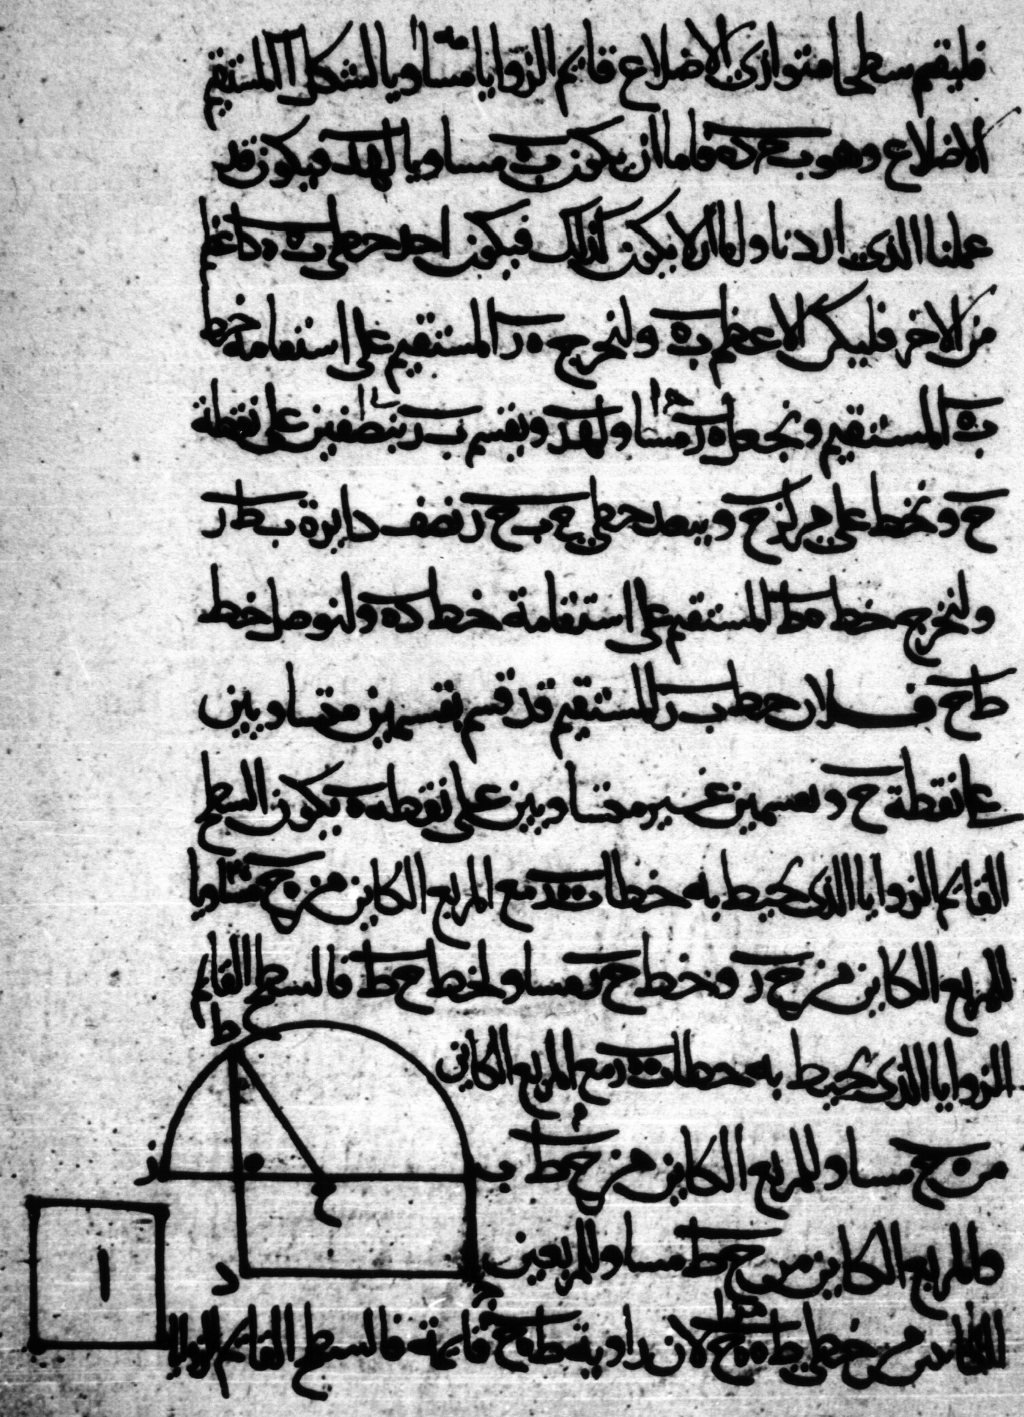 فليقم سطحا متوازي الاضلاع قايم الزوايا مساويا لشكل ا المستقيم
الاضلاع وهو ب ج د ه فاما ان يكون ب ه مساويا له د فيكون قد
عملنا الذي اردنا واما ان لا يكون كذلك فيكون احد خطي ب ه ه د اعظم
من الاخر فليكن الاعظم ب ه ولنخرج ه ر المستقيم على استقامة خط
ب ه المستقيم ونجعل ه ر مساو له د ونقسم ب ر بنصفين على نقطة
ح ونخط على مركز ح وببعد خطي ح ب ح ر نصف دايرة ب ط ر
ولنخرج خط ه ط المستقيم على استقامة خط د ه ولنوصل خط
ط ح فلان خط ب ر المستقيم قد قسم بقسمين متساويين
على نقطة ح وبقسمين غير متساويين على نقطة ه يكون السطح
القايم الزوايا الذي يحيط به خطا ب ه ه ر مع المربع الكاين من ه ح مساويا
للمربع الكاين من ح ر وخط ح ر مساو لخط ح ط فالسطح القايم
الزوايا الذي يحيط به خطا ب ه ه ر مع المربع الكاين
من ه ح مساو للمربع الكاين من ح ط
والمربع الكاين من ح ط مساو للمربعين
الكاينين من خطي ط ه ه ح لان زاوية ط ه ح قايمة فالسطح القايم الزوايا
ط
ر
ه
ح
ب
د
ج
ا